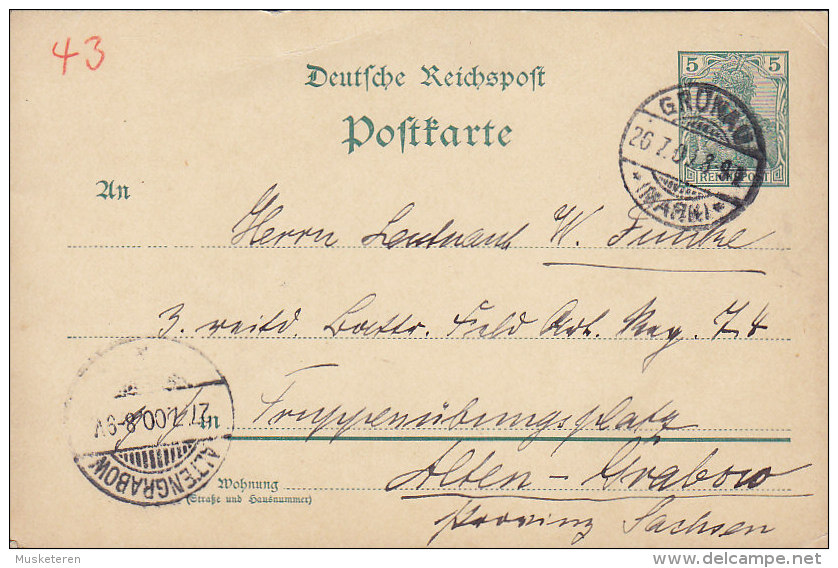 43
Deutsche Reichspost
Postkarte
5 5
REICHSPOST
GRÜNAU
26.7.00.8-9V.
*(MARK)*
An
Herrn Leutnant W. Funke
3. reitd. Battr. Feld Art. Reg. 74
in Truppenübungsplatz
Alten-Grabow
Provinz Sachsen
ALTENGRABOW
27.7.00.8-9V
Wohnung
(Straße und Hausnummer)
Musketeren
delcampe.net